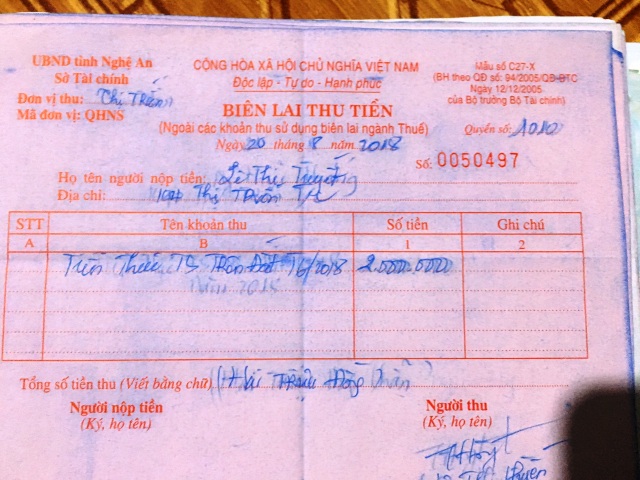 UBND tỉnh Nghệ An
Sở Tài chính
Đơn vị thu: Thị Trấn
Mã đơn vị: QHNS
CỘNG HÒA XÃ HỘI CHỦ NGHĨA VIỆT NAM
Độc lập - Tự do - Hạnh phúc
Mẫu số C27-X
(BH theo QĐ số: 94/2005/QĐ-BTC
Ngày 12/12/2005
của Bộ trưởng Bộ Tài chính)
BIÊN LAI THU TIỀN
(Ngoài các khoản thu sử dụng biên lai ngành Thuế)
Quyển số: 1010
Ngày 20 tháng 8 năm 2018
Số: 0050497
Họ tên người nộp tiền: Lê Thị
Địa chỉ: Thị Trấn
STT Tên khoản thu Số tiền Ghi chú
A B 1 2
Tiền 2.000.000
Năm 2018
Tổng số tiền thu (Viết bằng chữ) (Hai Triệu Đồng Chẵn)
Người nộp tiền
(Ký, họ tên)
Người thu
(Ký, họ tên)